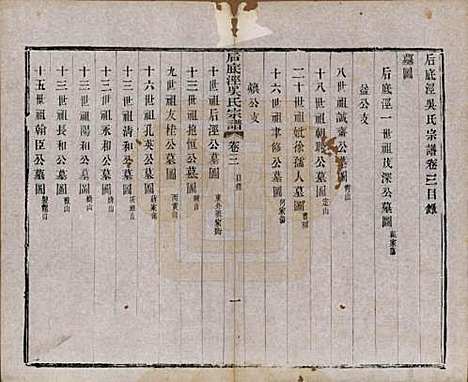 后底涇吳氏宗譜卷三目錄
墓圖
后底涇一世祖茂深公墓圖
益公支
八世祖誠齋公墓圖
十八世祖翰聰公墓圖 定山
二十世祖妣徐孺人墓圖
十六世祖聿修公墓圖
公支
后底涇吳氏宗譜 卷三 目錄 一
十世祖后涇公墓圖
十一世祖抱恒公墓圖
九世祖友桂公墓圖
十六世祖孔英公墓圖
十三世祖清和公墓圖
十三世祖永和公墓圖
十三世祖陽和公墓圖
十三世祖長和公墓圖
十五世祖翰臣公墓圖